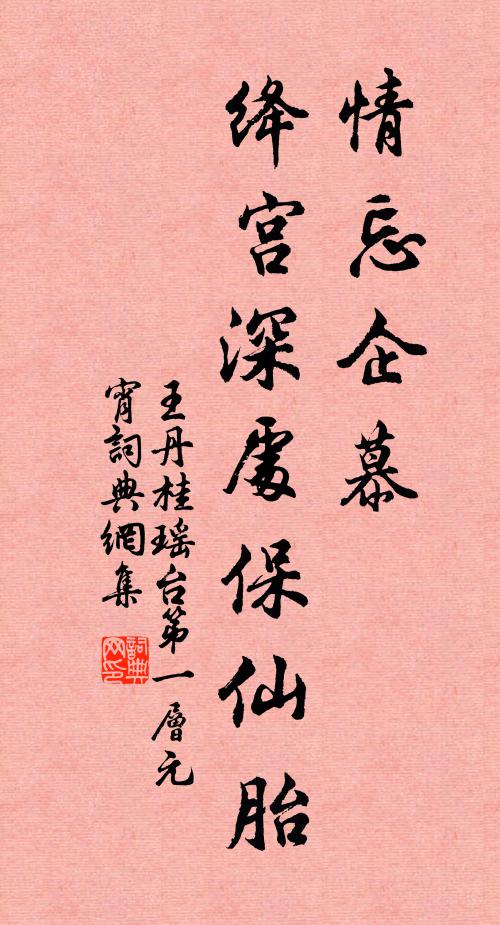 情忘企慕
绛宫深處保仙胎
王丹桂瑶台第一層元
宵詞典網集
詞典
网印